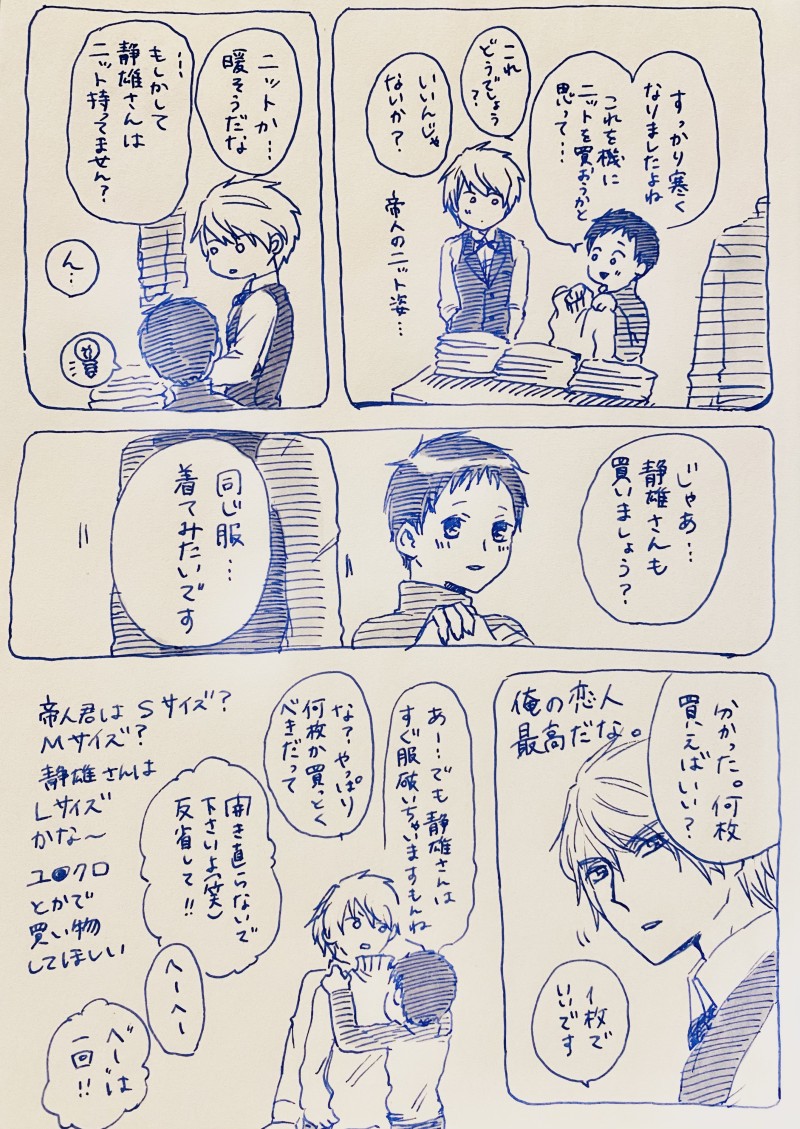 すっかり寒く
なりましたよね
これを機に
ニットを買おうかと
思って…
これ
どうでしょう
?
いいんじゃ
ないか?
帝人のニット姿…
ニットか…
暖そうだな
…
もしかして
静雄さんは
ニット持ってません?
ん…
じゃあ…
静雄さんも
買いましょう?
同じ服…
着てみたいです
分かった。何枚
買えばいい?
俺の恋人
最高だな。
1枚で
いいです
あー…でも静雄さんは
すぐ服破いちゃいますもんね
な?やっぱり
何枚か買っとく
べきだって
開き直らないで
下さいよ(笑)
反省して!!
へーへー
へーは
一回!!
帝人君はSサイズ?
Mサイズ?
静雄さんは
Lサイズ
かな〜
ユ●クロ
とかで
買い物
してほしい